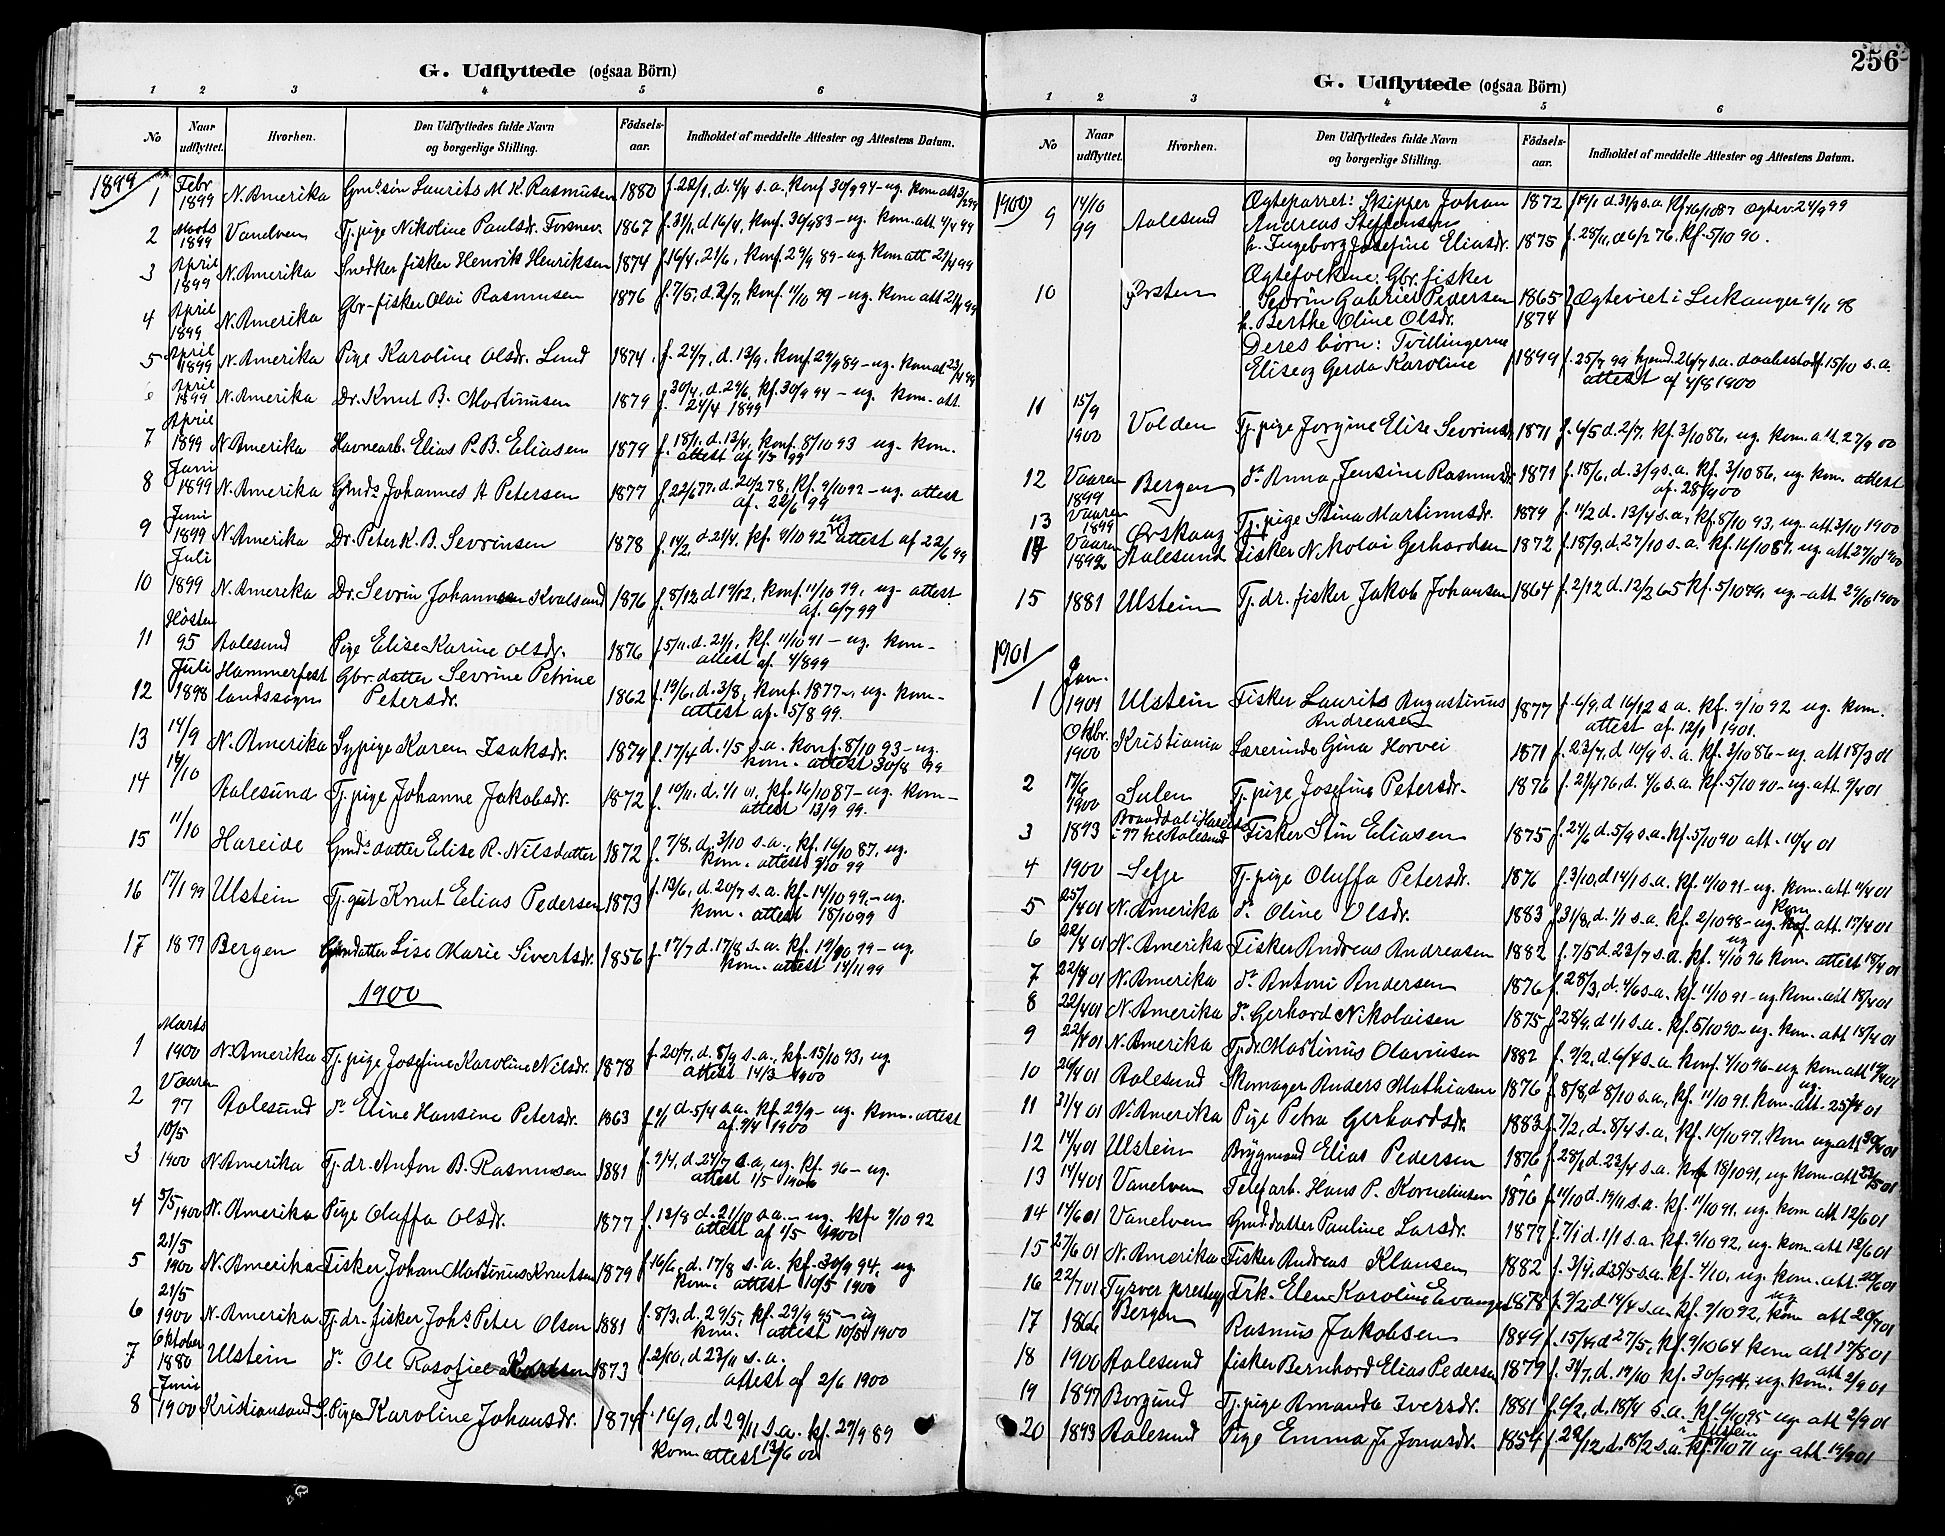 G. Udflyttede (ogsaa Börn)
1 2 3 4 5 6
No Naar udflyttet. Hvorhen. Den Udflyttedes fulde Navn og borgerlige Stilling. Födsels-aar. Indholdet af meddelte Attester og Attestens Datum.
1899
1 Febr 1899 N. Amerika Gmds søn Laurits M K. Rasmusen 1880 f. 22/1, d. 4/4 s. a. konf 30/9 94 - ug. kom att
2 Marts 1899 Vanelven Tj. pige Nikoline Paulsdr. 1867 f. 31/1, d 16/4, konf. 30/9 83 - ug. kom. att. 4/4 99
3 April 1899 N. Amerika Snedker fisker Henrik Henriksen 1874 f. 16/4, 21/6, konf. 29/9 89 - ug kom att 21/4 99
4 April 1899 N. Amerika Gbr-fisker Olai Rasmusen 1876 f. 7/5, d. 2/7, konf. 11/10 - ug. kom att 21/4 99
5 April 1899 N. Amerika Pige Karoline Olsdr. Lund 1874 f. 24/7, d. 13/9, konf 29/9 89 - ug. kom at 22/4 99
6 April 1899 N. Amerika Dr. Knut B. Martinusen 1879 f. 30/4, d. 29/6, kf. 30/9 94 - ug. kom. att.
24/4 1899
7 April 1899 N. Amerika Havnearb. Elias P. B. Eliasen 1879 f. 18/1, d. 13/4, konf. 8/10 93 ug. kom.
attest af 1/5 99
8 Juni 1899 N. Amerika Gmds Johannes A Petersen 1877 f. 22/6 77, d. 20/2 78, kf. 9/10 92 - ug. attest
af. 22/6 99
9 Juni 1899 N. Amerika Dr. Peter K. B. Sevrinsen 1878 f. 14/2, d 21/4, kf. 9/10 92 ug attest af 22/6 99
10 Juli 1899 N. Amerika Dr. Sevrin Johannesen Kvalsund 1876 f. 5/12 d 19/12, konf. 11/10, ug. attest
af. 6/7 99
11 Høsten 95 Aalesund Pige Elise Karine Olsdr. 1876 f. 5/11. d. 21/1, kf. 11/10 91 - ug. kom-
attest af. 4/8 99
12 Juli 1898 Hammerfest landssogn Gbr. datter Sevrine Petrine
Petersdr. 1862 f. 19/6, d. 3/8, konf. 1877 -, ug. kom-
attest af. 5/8 99.
13 14/9 N. Amerika Sypige Karen Isaksdr. 1879 f. 17/4 d. 1/5 s. a. konf. 8/10 93 - ug.
kom. attest 30/8 99
14 14/10 Aalesund Tj. pige Johanne Jakobsdr. 1872 f. 10/11. d. 1/1, kf. 16/10 87 - ug. kom-
attest 13/9 99.
15 11/10 Hareide Gmds datter Elise R. Nilsdatter 1872 f. 7/8, d. 3/10 s. a., kf. 16/10 87, ug.
kom. attest 9/10 99
16 17/1 99 Ulstein Tj. gut Knut Elias Pedersen 1873 f. 13/6, d. 20/7 s. a. kf. 14/10, - ug.
kom. attest 18/10 99
17 1877 Bergen Gmdatter Lise Marie Sivertsdr. 1856 f. 17/7 d. 17/8 s. a. kf. - ug.
kom. attest 14/11 99
1900
1 Marts 1900 N. Amerika Tj. pige Josefine Karoline Nilsdr. 1878 f. 20/7, d. 8/9 s. a., kf. 15/10 93, ug
attest 14/3 1900
2 Vaaren 97 Aalesund dr. Eline Hansine Petersdr. 1863 f. 4/1 d. 5/4 s. a. kf. 29/9 - ug. kom. attest
af. 9/4 1900
3 10/5 1900 N. Amerika Tj. dr. Anton B. Rasmusen 1881 f. 9/4, d. 24/7 s. a., ug. kf. 96 - ug.
attest 1/5 1900
4 5/5 1900 N. Amerika Pige Oluffa Olsdr. 1877 f. 12/8 d. 21/10 s. a. - ug. kf. 9/10 92
attest af 1/5 1900
5 21/5 1900 N. Amerika Fisker Johan Martinus Knutsen 1879 f. 16/6, d. 17/8 s. a. kf. 30/9 94, ug
kom. attest 10/5 1900
6 21/5 1900 N. Amerika Tj. dr. fisker Johs Peter Olsen 1881 f. 8/3, d. 29/5, kf. 29/9 95 - ug
kom. attest 10/5 1900
7 Oktober 1880 Ulstein dr. Ole Rasofiel 1873 f. 2/10, d 23/11 s. a.
attest af 2/6 1900
8 Juni 1900 Kristiansund S. Pige Karoline Johansdr. 1874 f. 16/9, d 29/11 s. a. kf. 29/9 89
kom attest 13/6 00
256
G. Udflyttede (ogsaa Börn)
1 2 3 4 5 6
No Naar udflyttet. Hvorhen. Den Udflyttedes fulde Navn og borgerlige Stilling. Födsels-aar. Indholdet af meddelte Attester og Attestens Datum.
1900
9 14/10 99 Aalesund Ægteparret: Skipper Johan
Andreas Steffensen 1872 f. 19/1 d. 31/3 s. a. kf. 16/10 87 Ægtev. 24/9 99
h. Ingeborg Josefine Eliasdr. 1875 f. 28/11, d 6/2 76, kf. 5/10 90.
10 Ørsten Ægtefolkene: Gbr. fisker
Sevrin Gabriel Pedersen 1865 Ægteviet i Leikanger 9/11 98
h. Berthe Oline Olsdr. 1874
Deres börn: Tvillingerne
Elise og Gerda Karoline 1899 f. 25/7 99 hjemd. 26/7 s. a. daabsstadf 15/10 s. a.
attest af 4/8 1900
11 15/9 1900 Volden Tj. pige Jorgine Elise Sevrinsdr 1871 f. 6/5 d. 2/7, kf. 3/10 86, ug. kom. att. 27/9 00
12 Vaaren 1899 Bergen dr. Anna Jensine Rasmusdr. 1871 f. 18/6, d. 3/9 s. a. kf. 3/10 86, ug. kom. attest
af. 28/9 00
13 Vaaren 1899 Ørskaug Tj. pige Stina Martinusdr. 1879 f. 11/2 d. 13/4 s. a., kf. 8/10 93, ug. att. 3/10 1900
14 Vaaren 1892 Aalesund fisker Nikolai Gerhardsen 1872 f. 18/9, d. 27/10 s. a. kf. 16/10 87, ug att. 27/10 1900
15 1881 Ulstein Tj. dr. fisker Jakob Johansen 1864 f. 2/12 d. 12/2 65 kf. 5/10 79, ug. - att. 29/10 1900
1901
1 Jan. 1901 Ulstein Fisker Laurits Augustinus
Andreasen 1877 f. 6/9, d 16/12 s a. kf. 9/10 92 ug. kom.
attest af. 12/1 1901.
Oktbr. 1900 Kristiania Lærerinde Gina Horvei 1871 f. 23/7, d. 10/9 s. a. kf. 3/10 86 - ug att 18/3 01
2 17/6 1900 Sulen Tj. pige Josefine Petersdr. 1876 f. 21/4 76, d. 4/6 s. a. kf. 5/10 90 - ug. att. 9/4 01
3 1893 Branddal i Hareide
i 97 til Aalesund Fisker Stin Eliasen 1875 f. 24/6 d. 5/9 s. a. kf. 5/10 90 att. 10/4 01
4 1900 Selje Tj. pige Oluffa Petersdr. 1876 f. 3/10, d 14/1 s. a. kf. 11/10 91 - ug. kom. att. 11/4 01
5 25/4 01 N. Amerika dr. Oline Olsdr. 1883 f. 31/8, d. 1/1 s. a. kf. 2/10 98 - ug. kom att. 17/4 01
6 22/4 01 N. Amerika Fisker Andreas Andreasen 1882 f. 7/5 d. 23/7 s. a. kf. 4/10 96 ug kom. attest 18/4 01
7 22/4 01 N. Amerika dr. Antoni Andersen 1876 f. 28/3, d. 4/6 s. a. kf. 11/10 91 - ug. kom. att 18/4 01
8 22/4 01 N. Amerika dr. Gerhard Nikolaisen 1875 f. 28/9, d 1/1 s. a. kf. 5/10 90 - ug. kom. att 18/4 01
9 22/4 01 N. Amerika Tj. dr. Martinus Olavusen 1882 f. 9/2, d. 6/4 s. a. konf. 4/10 96 - ug kom att 19/4 01
10 26/4 01 Aalesund Skomager Anders Mathiasen 1876 f. 8/8, d 8/10 s. a., kf. 11/10 91. kom. ug att. 25/4 01
11 31/4 01 N. Amerika Pige Petra Gerhardsdr. 1883 f. 7/2, d. 8/4 s. a, kf. 10/10 97, kom ug att. 30/4 01
12 14/4 01 Ulstein Bygmand Elias Pedersen 1876 f. 28/2 d. 23/4 s. a. kf 18/10 91, ug kom. att. 23/5 01
13 14/4 01 Vanelven Telefarb. Hans P. Korneliusen 1876 f. 11/10 d. 19/11 s. a. kf. 11/10 91, ug. kom att 12/6 01
14 14/6 01 Vanelven Gmd. datter Pauline Larsdr. 1877 f. 7/1 d. 1/1 s. a. kf. 9/10 92, ug. kom. att. 12/6 01
15 27/6 01 N. Amerika Fisker Andreas Klausen 1882 f. 3/4, d 25/5 s. a. kf. 4/10, ug. kom. att. 20/6 01
16 22/7 01 Tysvær prestegj Frk. Elen Karoline Evanger 1878 f. 9/2, d. 14/4 s. a. kf. 9/10 92, ug kom att 20/7 01
17 1866 Bergen Rasmus Jakobsen 1849 f. 15/4, d 27/5, kf. 9/10 64 kom att 17/8 01
18 1900 Aalesund fisker Bernhard Elias Pedersen 1879 f. 31/7, d. 19/10 kf. 30/9 94, ug. kom. att 2/9 01
19 1897 Borgund Tj. pige Amanda Iversdr. 1881 f. 6/2, d. 18/4 s. a. kf. 6/10 95 ug. att 2/9 01
20 1893 Aalesund Pige Emma J. Jonasdr. 1854 f. 22/12 d. 18/2 s. a. i Ulstein kf. 9/10 71 ug att. 19/9 01